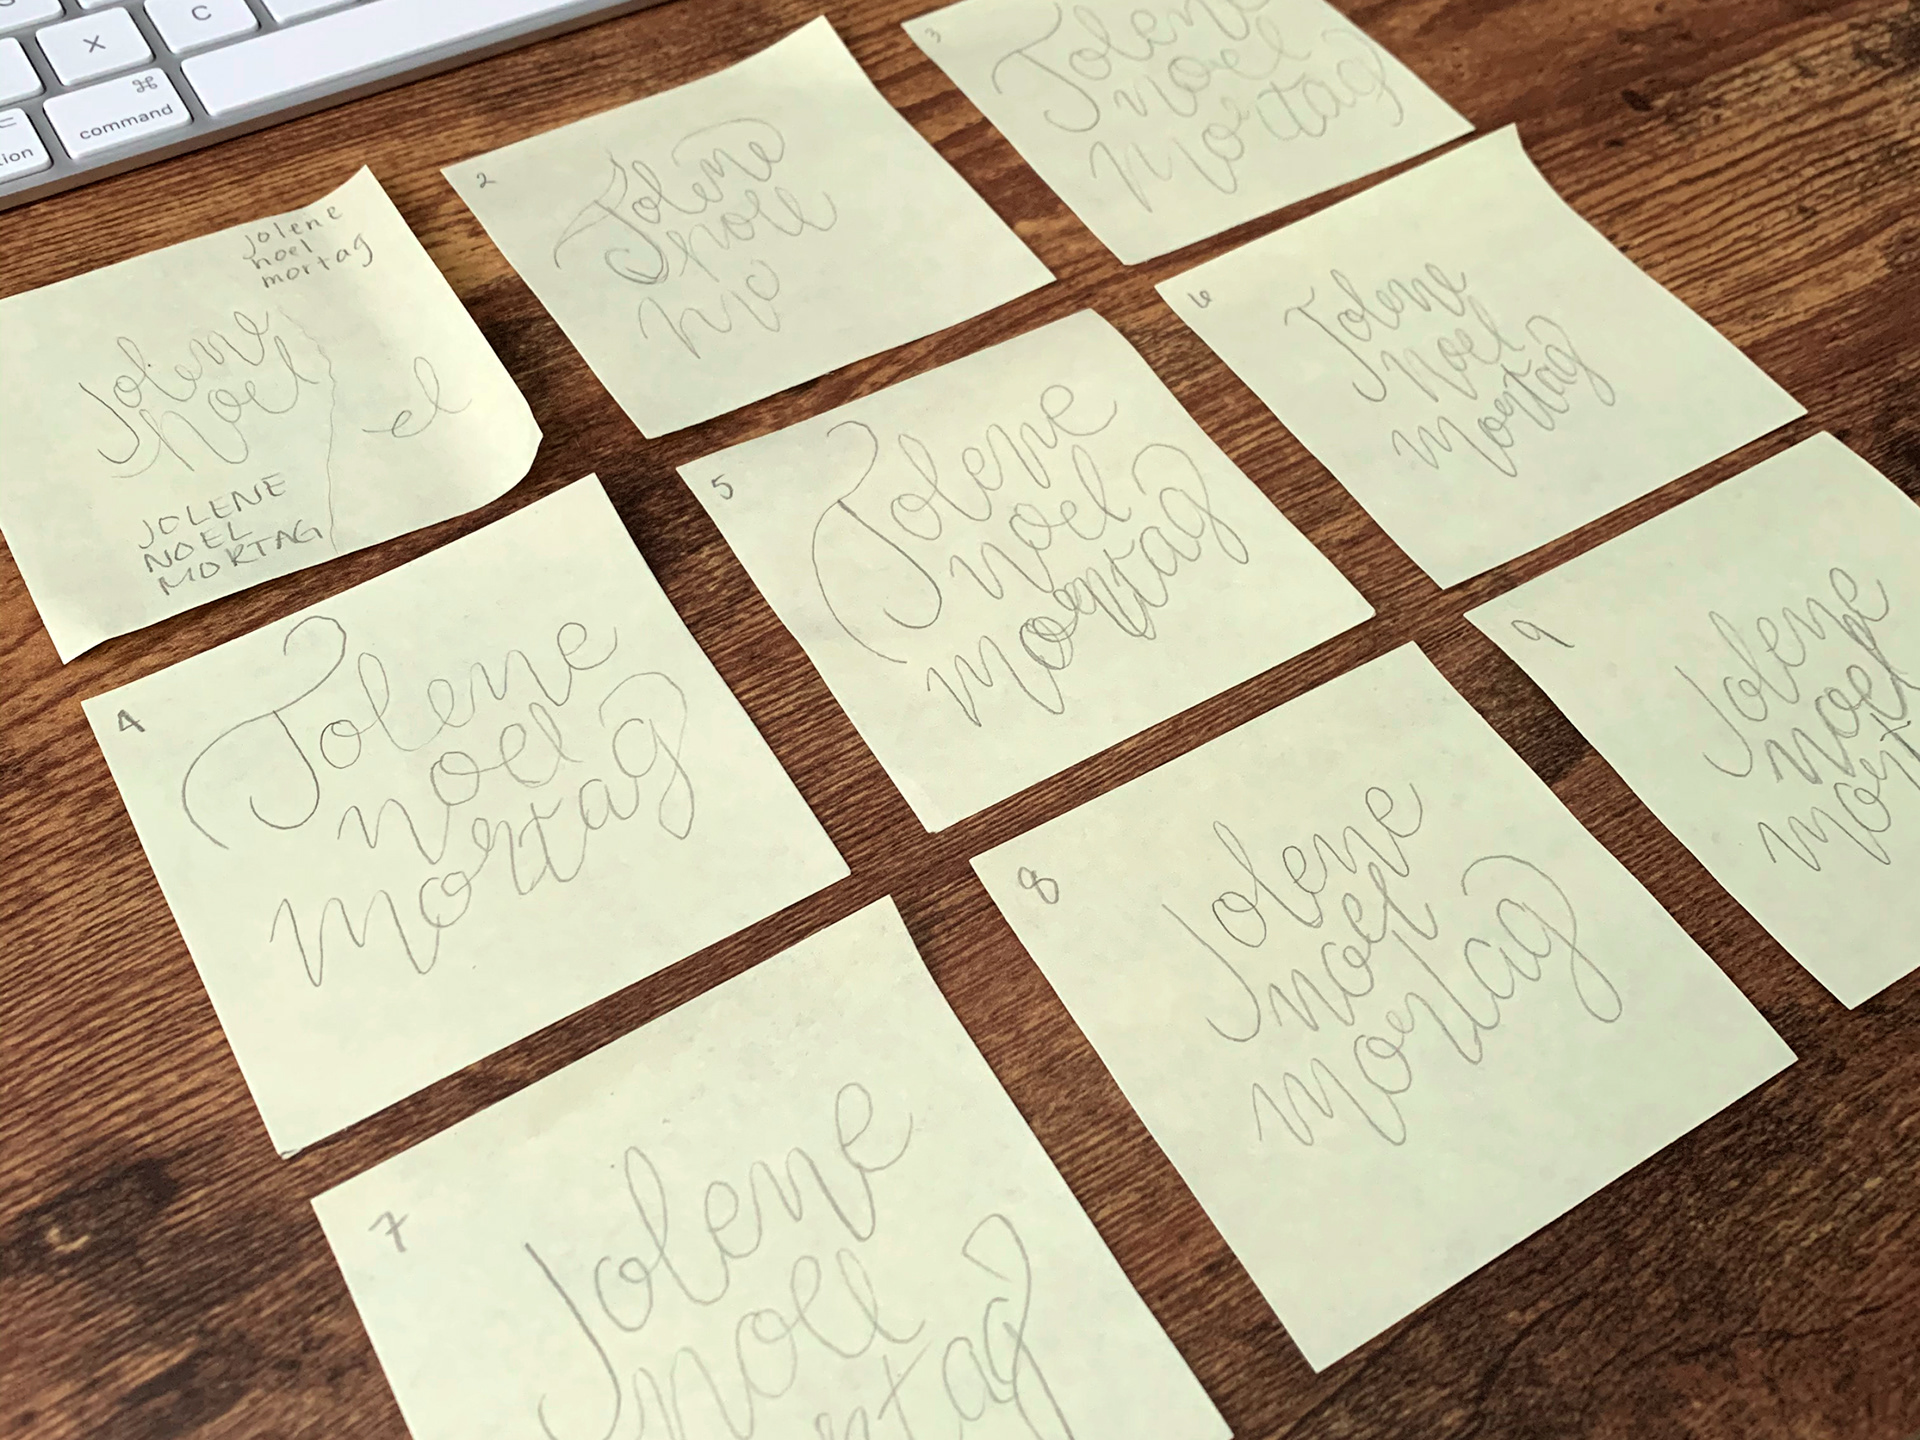 X
C
⌘
command
tion
jolene
noel
mortag
Jolene
Noel
el
JOLENE
NOEL
MORTAG
2
Jolene
noel
mo
3
Jolene
noel
mortag
4
Jolene
noel
mortag
5
Jolene
noel
mortag
6
Jolene
noel
mortag
7
Jolene
noel
rtag
8
Jolene
noel
mortag
9
Jolene
noel
mort